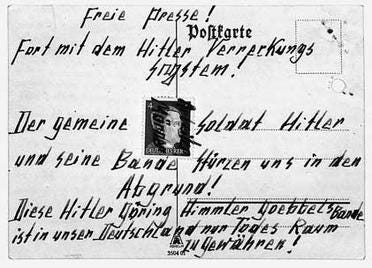 Freie Presse!
Postkarte
Fort mit dem Hitler Verrerkungs
System!
Der gemeine Soldat Hitler
4
und seine Bande stürzen uns in den
Abgrund!
Diese Hitler Göring Himmler Goebbels Bande
ist in unser Deutschland nur Todes Raum
zu gewähren!